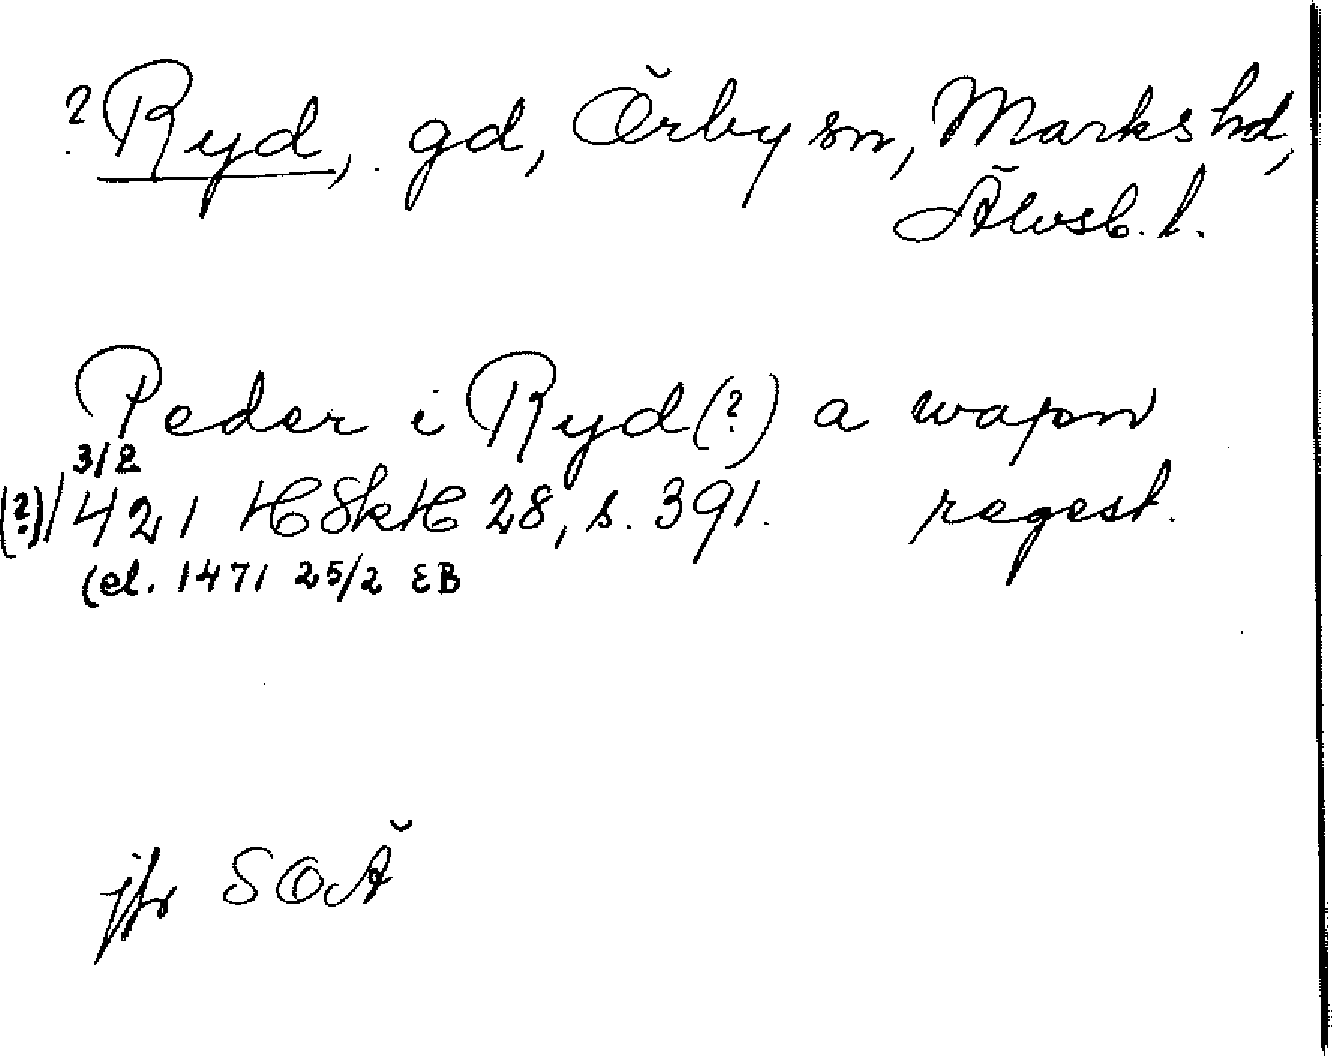 ? Ryd, gd, Örby sn, Marks hd,
Älvsb. l.
Peder i Ryd (?) a wapn
3/2
(?)/421 HSkH 28, s. 391. regest.
(el. 1471 25/2 EB
jfr SOÄ